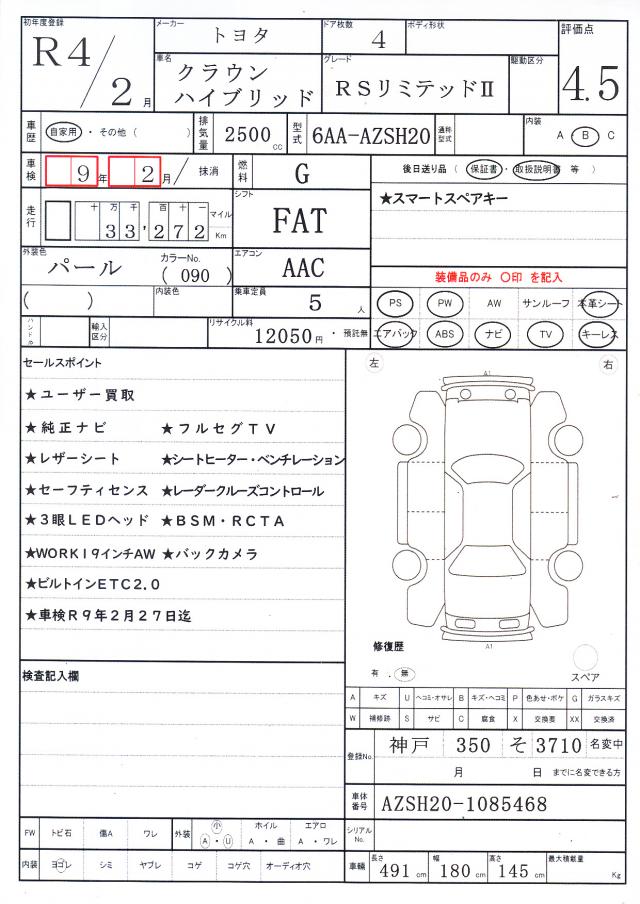 初年度登録 メーカー トヨタ ドア枚数 4 ボディ形状 評価点
R4/2月 車名 クラウン ハイブリッド グレード RSリミテッドⅡ 駆動区分 4.5
車歴 自家用・その他( ) 排気量 2500cc 型式 6AA-AZSH20 通称型式 内装 A B C
車検 9年2月/抹消 燃料 G 後日送り品(保証書・取扱説明書 等)
走行 十万千百十一 33,272 マイル Km シフト FAT ★スマートスペアキー
外装色 パール カラーNo. (090) エアコン AAC 装備品のみ 〇印 を記入
( ) 内装色 乗車定員 5人 PS PW AW サンルーフ 本革シート
輸入区分 リサイクル料 12050円・預託無 エアバック ABS ナビ TV キーレス
セールスポイント 左 右
★ユーザー買取
★純正ナビ ★フルセグTV
★レザーシート ★シートヒーター・ベンチレーション
★セーフティセンス ★レーダークルーズコントロール
★3眼LEDヘッド ★BSM・RCTA
★WORK19インチAW ★バックカメラ
★ビルトインETC2.0
★車検R9年2月27日迄
A1
A1
修復歴
有 . 無 スペア
検査記入欄
A キズ U ヘコミ・オサレ B キズ・ヘコミ P 色あせ・ボケ G ガラスキズ
W 補修跡 S サビ C 腐食 X 交換要 XX 交換済
登録No. 神戸 350 そ 3710 名変中
月 日 までに名変できる方
車体番号 AZSH20-1085468
FW トビ石 傷A ワレ 外装 小 A・U ホイル A・曲 エアロ A・ワレ シリアルNo.
内装 ヨゴレ シミ ヤブレ コゲ コゲ穴 オーディオ穴 車輛 長さ 491cm 幅 180cm 高さ 145cm 最大積載量 Kg